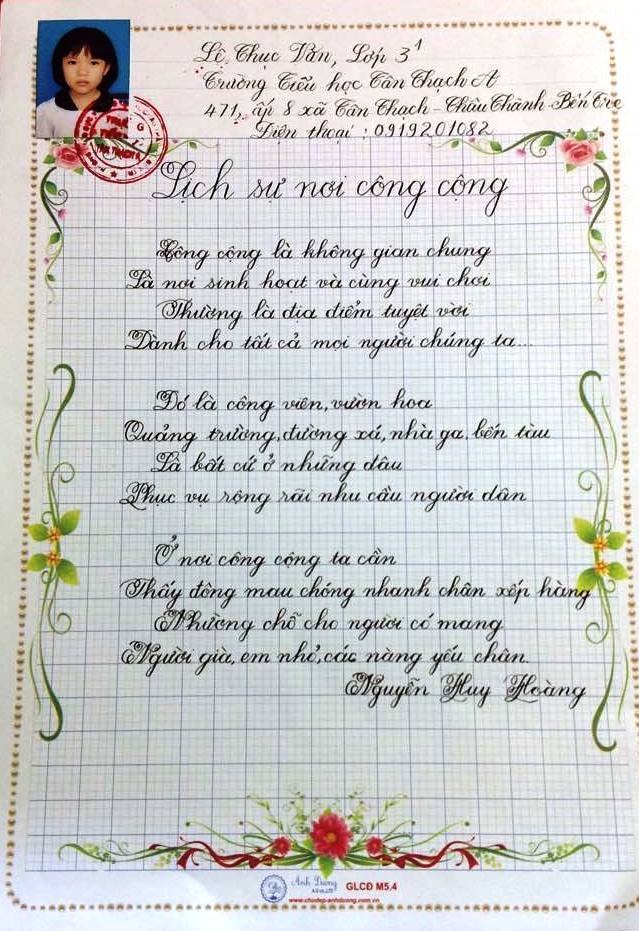 Lê Thục Vân, Lớp 3¹
Trường Tiểu học Tân Thạch A
471, ấp 8 xã Tân Thạch - Châu Thành - Bến Tre
Điện thoại : 0919201082
Lịch sự nơi công cộng
Công cộng là không gian chung
Là nơi sinh hoạt và cùng vui chơi
Thường là địa điểm tuyệt vời
Dành cho tất cả mọi người chúng ta...
Đó là công viên, vườn hoa
Quảng trường, đường xá, nhà ga, bến tàu
Là bất cứ ở những đâu
Phục vụ rộng rãi nhu cầu người dân
Ở nơi công cộng ta cần
Thấy đông mau chóng nhanh chân xếp hàng
Nhường chỗ cho người có mang
Người già, em nhỏ, các nàng yếu chân.
Nguyễn Huy Hoàng
Ánh Dương GLCĐ M5.4
www.chudep-anhduong.com.vn